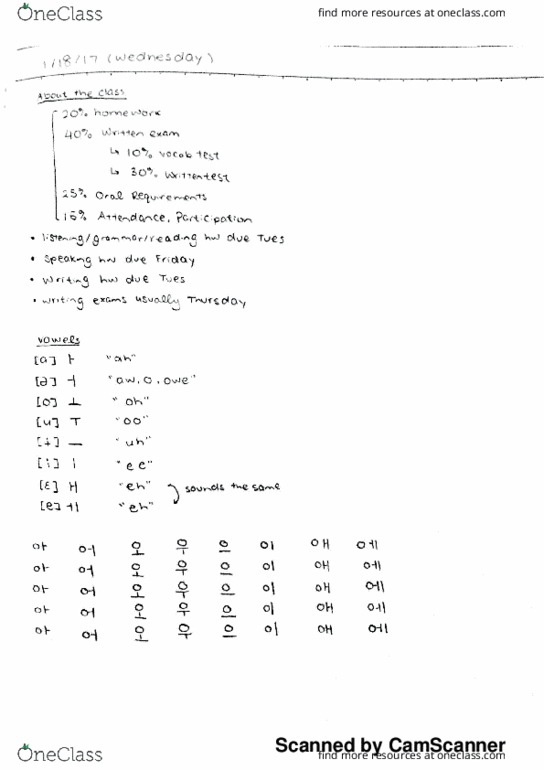 OneClass
find more resources at oneclass.com
1/18/17 (Wednesday)
About the class
20% homework
40% written exam
↳ 10% vocab test
↳ 30% written test
25% Oral Requirements
15% Attendance, Participation
• listening/grammar/reading hw due Tues
• Speaking hw due Friday
• Writing hw due Tues
• writing exams usually Thursday
vowels
[a] ㅏ "ah"
[ə] ㅓ "aw, o, owe"
[o] ㅗ "oh"
[u] ㅜ "oo"
[ɨ] ㅡ "uh"
[i] ㅣ "ee"
[ɛ] ㅐ "eh" sounds the same
[e] ㅔ "eh"
아 어 오 우 으 이 애 에
아 어 오 우 으 이 애 에
아 어 오 우 으 이 애 에
아 어 오 우 으 이 애 에
아 어 오 우 으 이 애 에
Scanned by CamScanner
OneClass
find more resources at oneclass.com